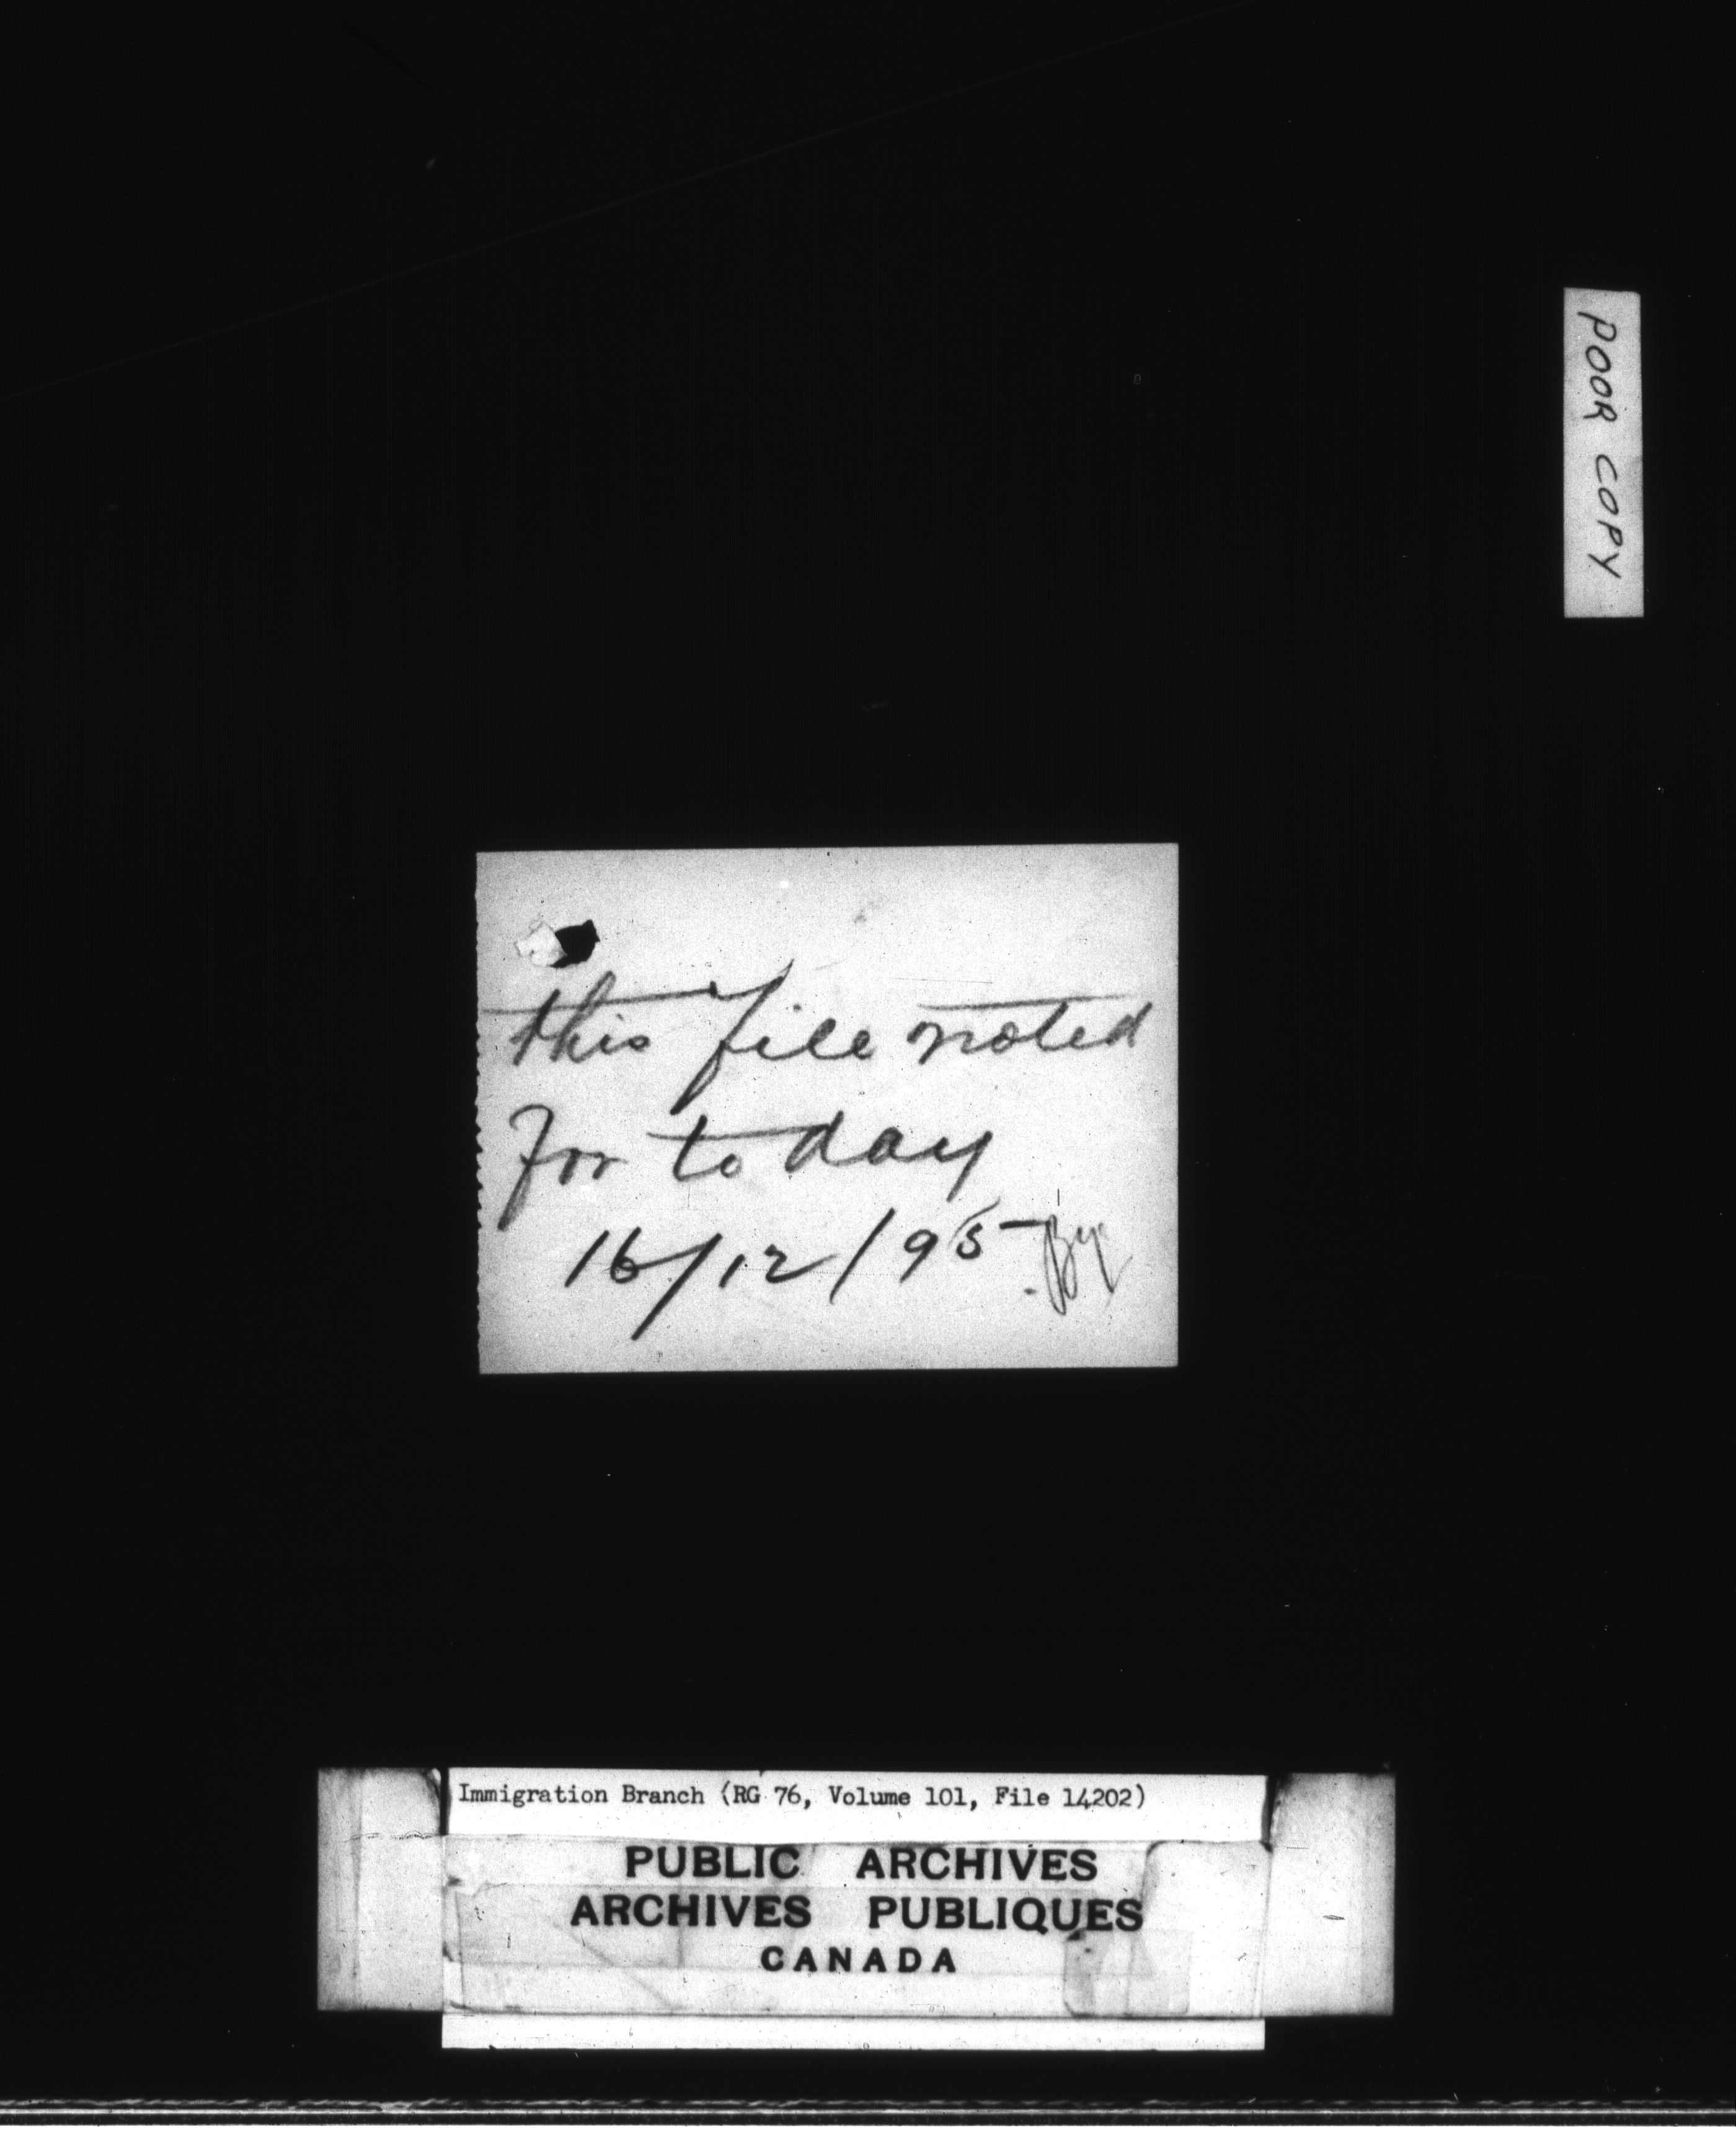 POOR COPY
this file noted
for to day
16/12/95
Immigration Branch (RG 76, Volume 101, File 14202)
PUBLIC ARCHIVES
ARCHIVES PUBLIQUES
CANADA